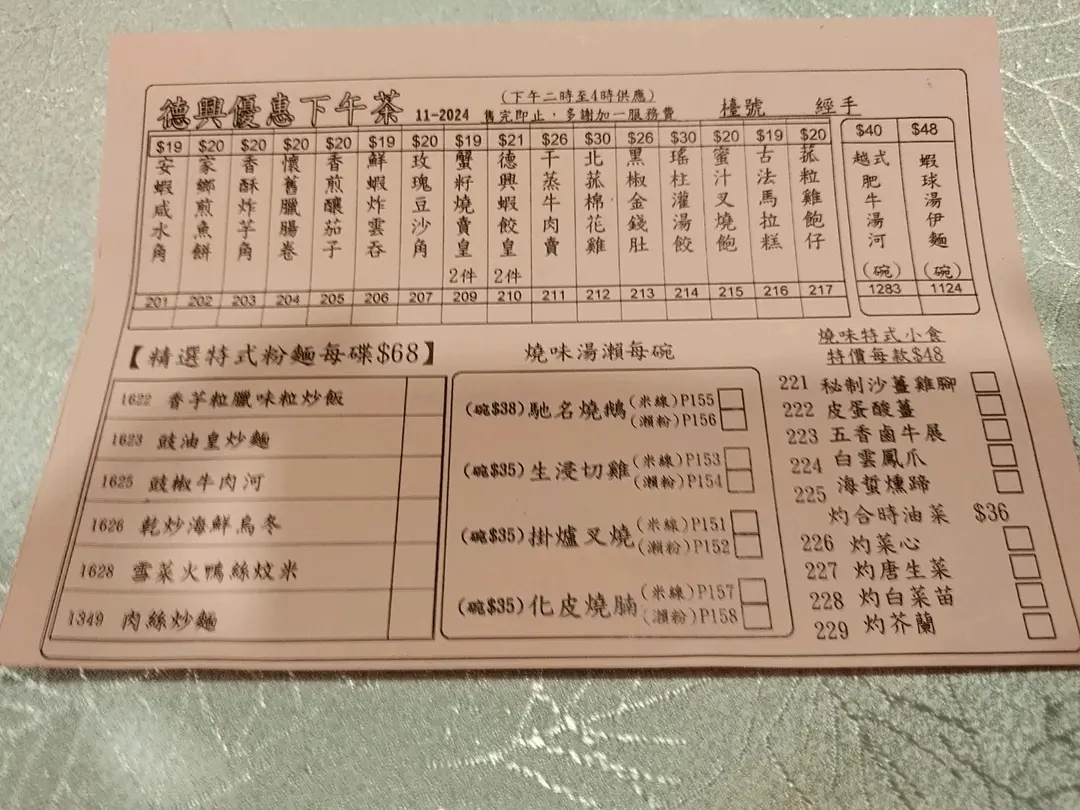 德興優惠下午茶 11-2024 (下午二時至4時供應) 售完即止，多謝加一服務費 檯號 經手
$19 安蝦咸水角 201
$20 家鄉煎魚餅 202
$20 香酥炸芋角 203
$20 懷舊臘腸卷 204
$20 香煎釀茄子 205
$19 鮮蝦炸雲吞 206
$20 玫瑰豆沙角 207
$19 蟹籽燒賣皇 2件 209
$21 德興蝦餃皇 2件 210
$26 干蒸牛肉賣 211
$30 北菰棉花雞 212
$26 黑椒金錢肚 213
$30 瑤柱灌湯餃 214
$20 蜜汁叉燒飽 215
$19 古法馬拉糕 216
$20 菰粒雞飽仔 217
$40 越式肥牛湯河 (碗) 1283
$48 蝦球湯伊麵 (碗) 1124
【精選特式粉麵每碟$68】
1622 香芋粒臘味粒炒飯
1623 豉油皇炒麵
1625 豉椒牛肉河
1626 乾炒海鮮烏冬
1628 雪菜火鴨絲炆米
1349 肉絲炒麵
燒味湯瀨每碗
(碗$38)馳名燒鵝(米線)P155
(瀨粉)P156
(碗$35)生浸切雞(米線)P153
(瀨粉)P154
(碗$35)掛爐叉燒(米線)P151
(瀨粉)P152
(碗$35)化皮燒腩(米線)P157
(瀨粉)P158
燒味特式小食
特價每款$48
221 秘制沙薑雞腳
222 皮蛋酸薑
223 五香鹵牛展
224 白雲鳳爪
225 海蜇燻蹄
灼合時油菜 $36
226 灼菜心
227 灼唐生菜
228 灼白菜苗
229 灼芥蘭